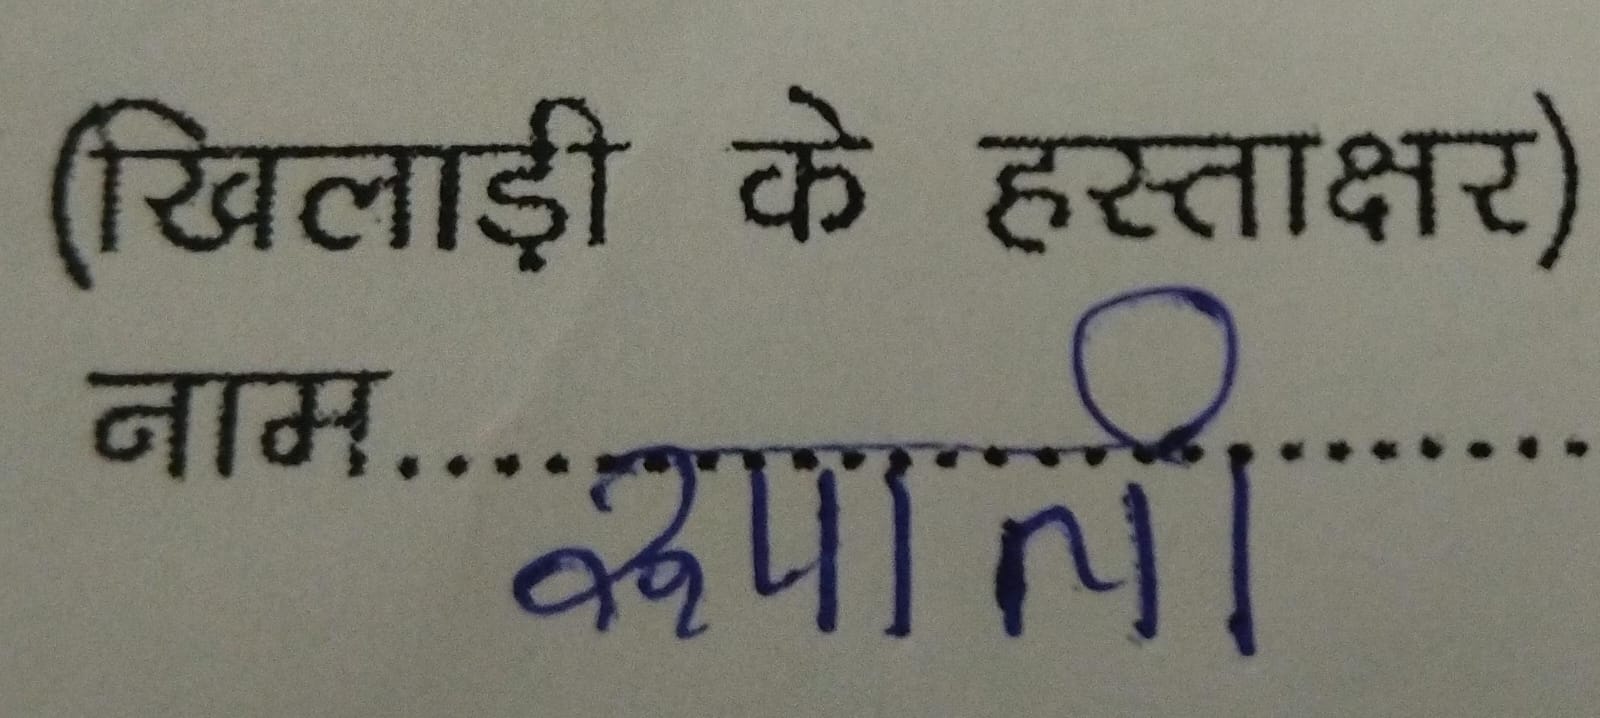 (खिलाड़ी के हस्ताक्षर)
नाम.................. रूपाली